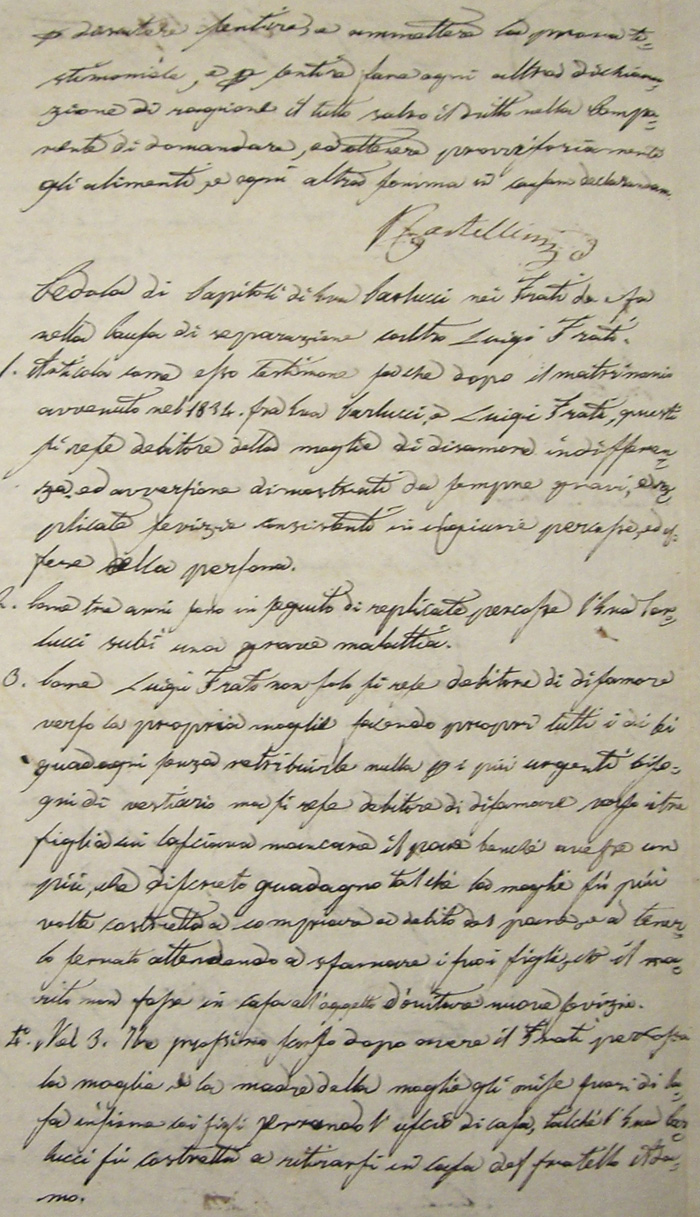 p decretare sentire, e ammettere la prova te=
stimoniale, e p sentire fare ogni altra dichiara=
zione di ragione il tutto salvo il dritto nella Compa=
rente di domandare, ed ottenere provvisoriamente
gli alimenti, e ogni altra somma in
Castellini
Cedola di Capitoli di Eva Carlucci nei Frati da
nella Causa di separazione contro Luigi Frati.
1. Articola come esso testimone sa che dopo il matrimonio
avvenuto nel 1834. fra Eva Carlucci, e Luigi Frati, questi
si rese debitore della moglie di disamore indifferen=
za, ed avversione dimostrati da sempre gravi, e re=
plicate sevizie consistenti in ingiurie percosse, ed of=
fese della persona.
2. Come tre anni sono in seguito di replicate percosse l'Eva Car=
lucci subì una grave malattia.
3. Come Luigi Frati non solo si rese debitore di disamore
verso la propria moglie facendo propri tutti i di lei
guadagni senza retribuirle nulla p i più urgenti biso=
gni di vestiario ma si rese debitore di disamore verso i tre
figli a cui lasciava mancare il pane benchè avesse un
più, che discreto guadagno talchè la moglie fù più
volte costretta a comprare a debito del pane, e a tener=
lo serrato attendendo a sfamare i suoi figli, che il ma=
rito non fosse in casa all'oggetto d'evitare nuove sevizie.
4.° Nel 3. 7bre prossimo scorso dopo avere il Frati percossa
la moglie e la madre della moglie gli mise fuori di ca=
sa insieme coi figli serrando l'uscio di casa, talchè l'Eva Car
lucci fù costretta a ritirarsi in casa del fratello Ada=
mo.